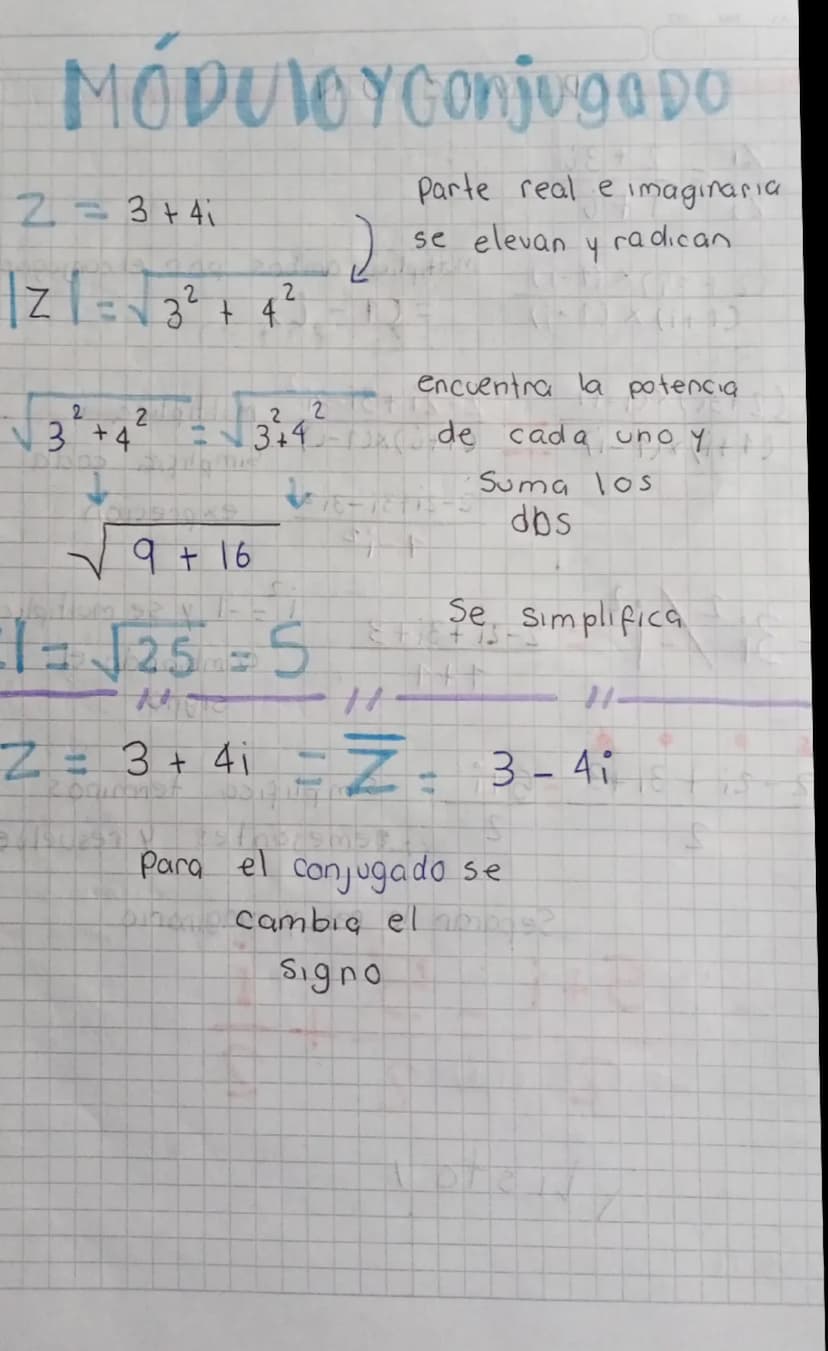 MÓDULO Y Conjugado
Z = 3 + 4i
Parte real e imaginaria
se elevan y radican
|Z| = √3² + 4²
encuentra la potencia
√3² + 4² = √3² + 4²
de cada uno y
suma los
dos
√9 + 16
Se simplifica
| = √25 = 5
Z = 3 + 4i = Z̅ = 3 - 4i
Para el conjugado se
cambia el
signo